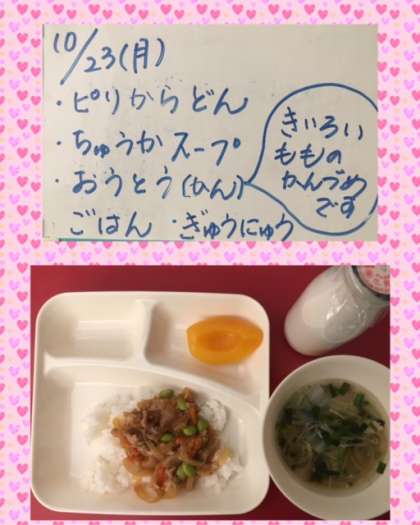 10/23(月)
・ピリからどん
・ちゅうかスープ
・おうとう(かん)
ごはん ・ぎゅうにゅう
きいろい
ももの
かんづめ
です